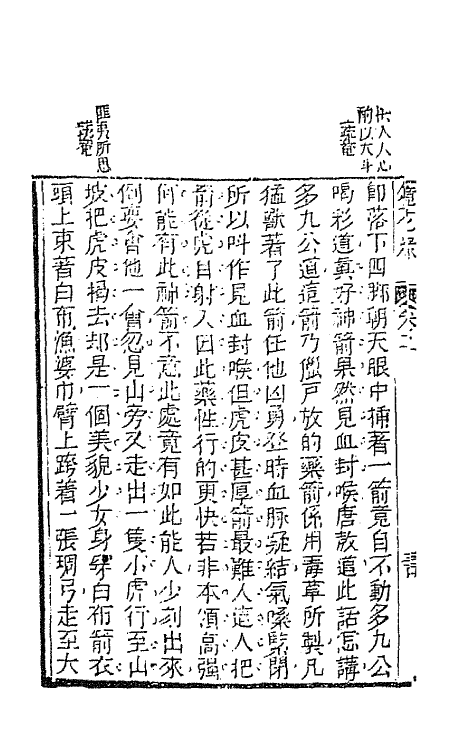 鏡花緣
卷二
即落下四腳朝天眼中插著一箭竟自不動多九公
喝彩道真好神箭果然見血封喉唐敖道此話怎講
多九公道這箭乃獵戶放的藥箭係用毒草所製凡
猛獸著了此箭任他凶勇登時血脈凝結氣嗓緊閉
所以叫作見血封喉但虎皮甚厚箭最難入這人把
箭從虎目射入因此藥性行的更快若非本領高強
何能有此神箭不意此處竟有如此能人少刻出來
倒要會他一會忽見山旁又走出一隻小虎行至山
坡把虎皮揭去却是一個美貌少女身穿白布箭衣
頭上束著白布漁婆巾臂上跨著一張琱弓走至大
匪夷所思